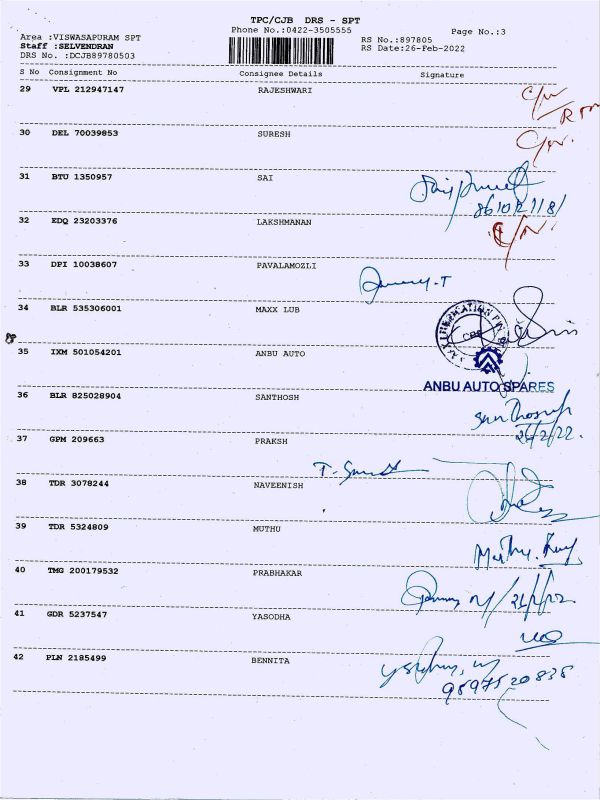 TPC/CJB DRS - SPT
Phone No.:0422-3505555
Page No.:3
Area :VISWASAPURAM SPT
RS No.:897805
Staff :SELVENDRAN
RS Date:26-Feb-2022
DRS No. :DCJB89780503
S No Consignment No Consignee Details Signature
29 VPL 212947147 RAJESHWARI
30 DEL 70039853 SURESH
31 BTU 1350957 SAI
32 EDQ 23203376 LAKSHMANAN
33 DPI 10038607 PAVALAMOZLI
34 BLR 535306001 MAXX LUB
35 IXM 501054201 ANBU AUTO
ANBU AUTO SPARES
36 BLR 825028904 SANTHOSH
26/2/22.
37 GPM 209663 PRAKSH
38 TDR 3078244 NAVEENISH
39 TDR 5324809 MUTHU
40 TMG 200179532 PRABHAKAR
41 GDR 5237547 YASODHA
42 PLN 2185499 BENNITA